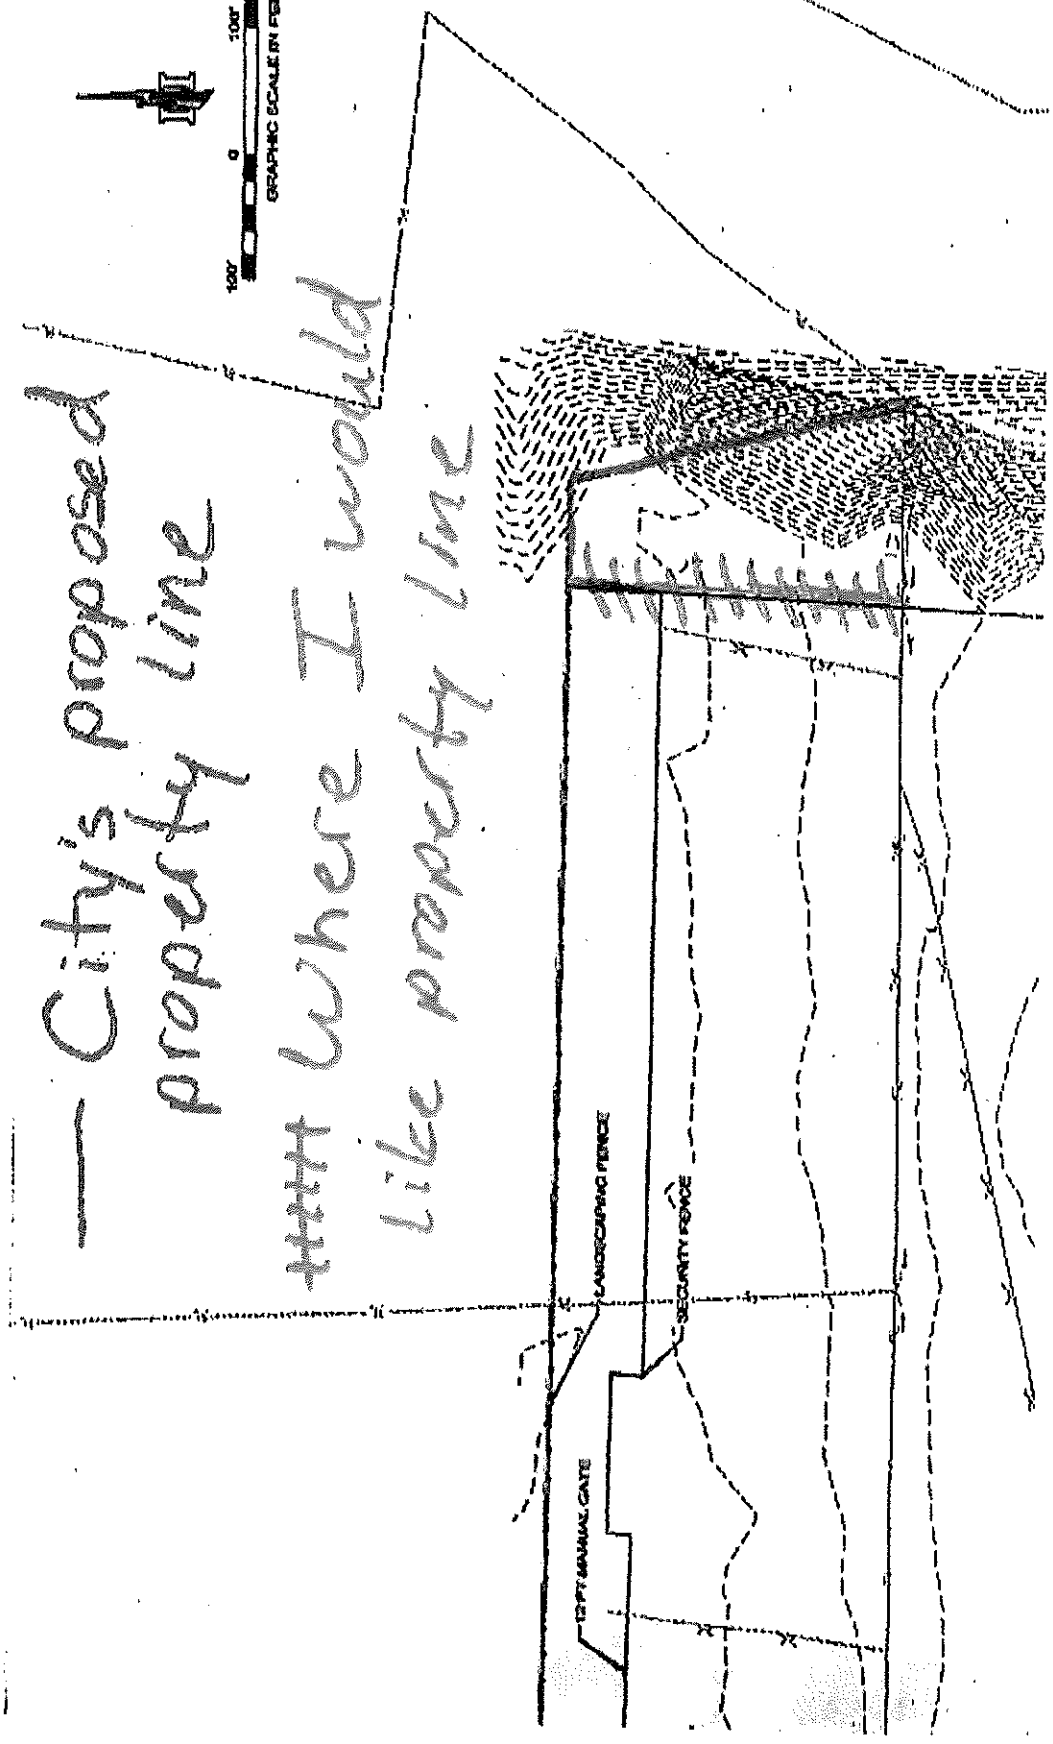 — City's proposed
property line
++++ Where I would
like property line
100'
0
100'
GRAPHIC SCALE IN
LANDSCAPING FENCE
SECURITY FENCE
12 FT MANUAL GATE